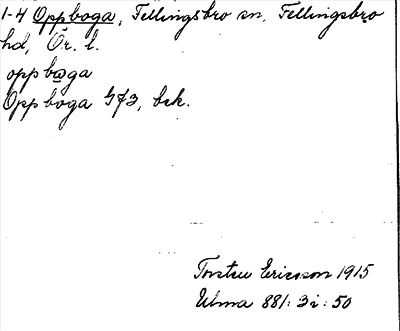 1-4 Oppboga, Fellingsbro sn, Fellingsbro
hd, Ör. l.
oppboga
Oppboga G73, bek.
Torsten Ericsson 1915
Ulma 881:3i:50